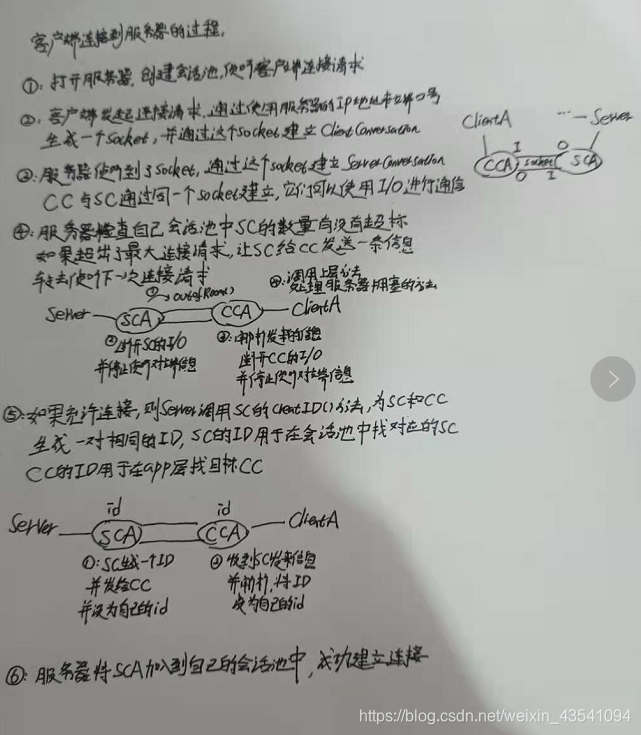 客户端连接到服务器的过程,
①: 打开服务器, 创建会话池, 侦听客户端连接请求
②: 客户端发起连接请求, 通过使用服务器的IP地址和端口号
生成一个Socket, 并通过这个Socket建立Client Conversation
ClientA ... Server
CCA I O socket O I SCA
③: 服务器侦听到了Socket, 通过这个socket建立Server Conversation
CC与SC通过同一个socket建立, 它们可以使用I/O进行通信
④: 服务器检查自己会话池中SC的数量有没有超标
如果超出了最大连接请求, 让SC给CC发送一条信息
转去侦听下一次连接请求
① outofRoom()
④: 调用上层方法
处理服务器拥塞的方法
Server SCA CCA ClientA
② 断开SC的I/O
并停止侦听对端信息
③: 解析发来的信息
断开CC的I/O
并停止侦听对端信息
⑤: 如果允许连接, 则Server调用SC的creatID()方法, 为SC和CC
生成一对相同的ID, SC的ID用于在会话池中找对应的SC
CC的ID用于在app层找目标CC
id id
Server SCA CCA ClientA
①: SC生成一个ID
并发给CC
并设为自己的id
② 收到SC发来信息
并解析, 将ID
设为自己的id
⑥: 服务器将SCA加入到自己的会话池中, 成功建立连接
https://blog.csdn.net/weixin_43541094